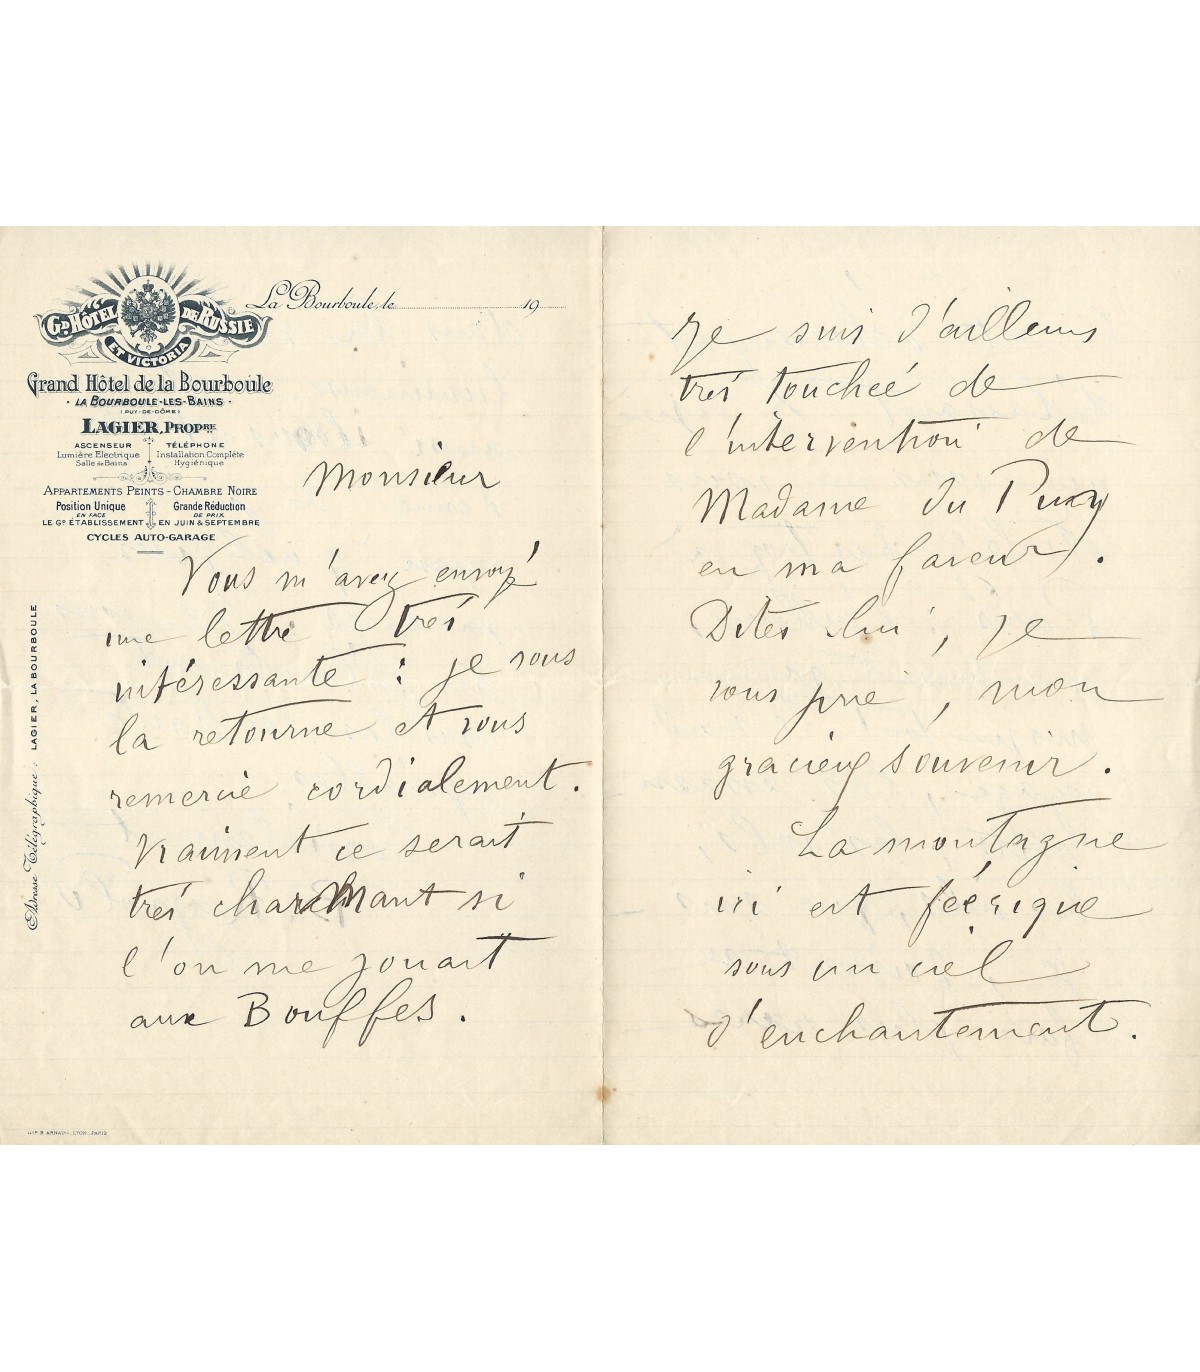 Gd HÔTEL DE RUSSIE
ET VICTORIA
Grand Hôtel de la Bourboule
· LA BOURBOULE-LES-BAINS ·
(PUY-DE-DÔME)
LAGIER, PROPRE
ASCENSEUR TÉLÉPHONE
Lumière Electrique Installation Complète
Salle de Bains Hygiénique
APPARTEMENTS PEINTS - CHAMBRE NOIRE
Position Unique Grande Réduction
EN FACE DE PRIX
LE Gd ÉTABLISSEMENT EN JUIN & SEPTEMBRE
CYCLES AUTO-GARAGE
Adresse Télégraphique : LAGIER, LA BOURBOULE
La Bourboule, le 19
Monsieur
Vous m'avez envoyé
une lettre très
intéressante : je vous
la retourne et vous
remercie cordialement.
Vraiment ce serait
très charmant si
l'on me jouait
aux Bouffes.
IMP. B. ARNAUD, LYON-PARIS
Je suis d'ailleurs
très touchée de
l'intervention de
Madame du Puy
en ma faveur.
Dites lui, je
vous prie, mon
gracieux souvenir.
La montagne
ici est féerique
sous un ciel
d'enchantement.